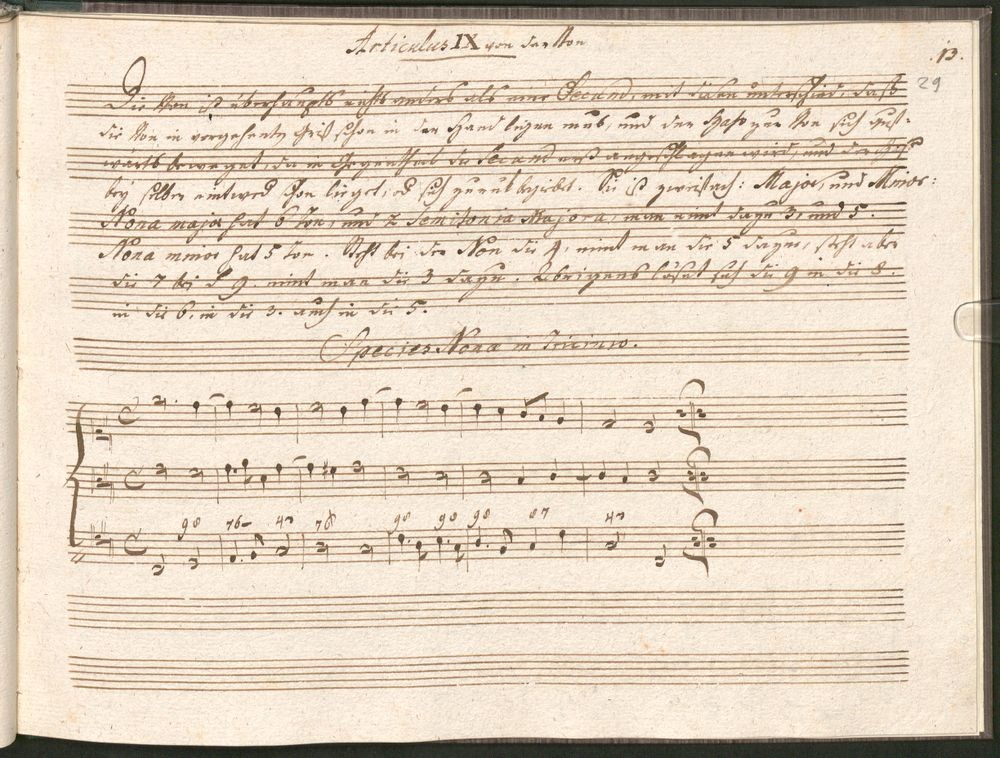 Articulus IX von der Non
13.
29
Die Non ist überhaupts nichts anders als eine Secund, mit disem unterschied, daß
die Non in vorgehenden schon in der Hand ligen mus, und der Bass zur Non sich
wärts beweget, da im Gegentheil die Secund erst angeschlagen wird, und der Bass
bey selber entwed. schon lieget, od sich zuruk begiebet. Sie ist zweifach: Major, und Minor:
Nona major hat 6 Ton, und 2 Semitonia Majora, man nimt dazu 3, und 5.
Nona minor hat 5 Ton. Steht bei der Non die 4, nimt man die 5 dazu, steht aber
die 7 bei d 9. nimt man die 3 dazu. Übrigens löset sich die 9 in die 8.
in die 6, in die 3. auch in die 5.
Species Nona in Tricinio.
98 76 43 76 98 98 98 87 43